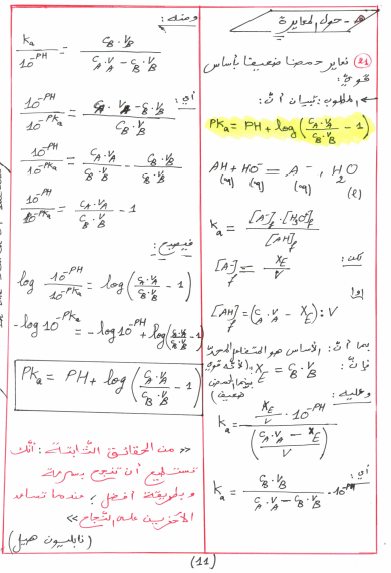 حول المعايرة -
(21) نعاير حمضا ضعيفا بأساس
قوي:
المطلوب: تبيان أن:
PKa = PH + log(CA.VA/CB.VB - 1)
AH(aq) + HO⁻(aq) = A⁻(aq) + H2O(l)
Ka = [A⁻]f.[H3O⁺]f / [AH]f
لكن: [A⁻]f = XE/V
و
[AH]f = (CA.VA - XE) : V
بما أن: الأساس هو المتفاعل المحد
فإن: XE = CB.VB
وعليه:
Ka = (XE/V . 10^-PH) / ((CA.VA - XE)/V)
أي:
Ka = CB.VB / (CA.VA - CB.VB) . 10^-PH
ومنه:
Ka / 10^-PH = CB.VB / (CA.VA - CB.VB)
أي:
10^-PH / 10^-PKa = (CA.VA - CB.VB) / CB.VB
10^-PH / 10^-PKa = CA.VA/CB.VB - CB.VB/CB.VB
10^-PH / 10^-PKa = CA.VA/CB.VB - 1
فيصبح:
log 10^-PH / 10^-PKa = log(CA.VA/CB.VB - 1)
-log 10^-PKa = -log 10^-PH + log(CA.VA/CB.VB - 1)
PKa = PH + log(CA.VA/CB.VB - 1)
« من الحقائق الثابتة: أنك
تستطيع أن تنجح بسرعة
وبطريقة أفضل، عندما تساعد
الآخرين على النجاح »
(نابليون هيل)
(11)